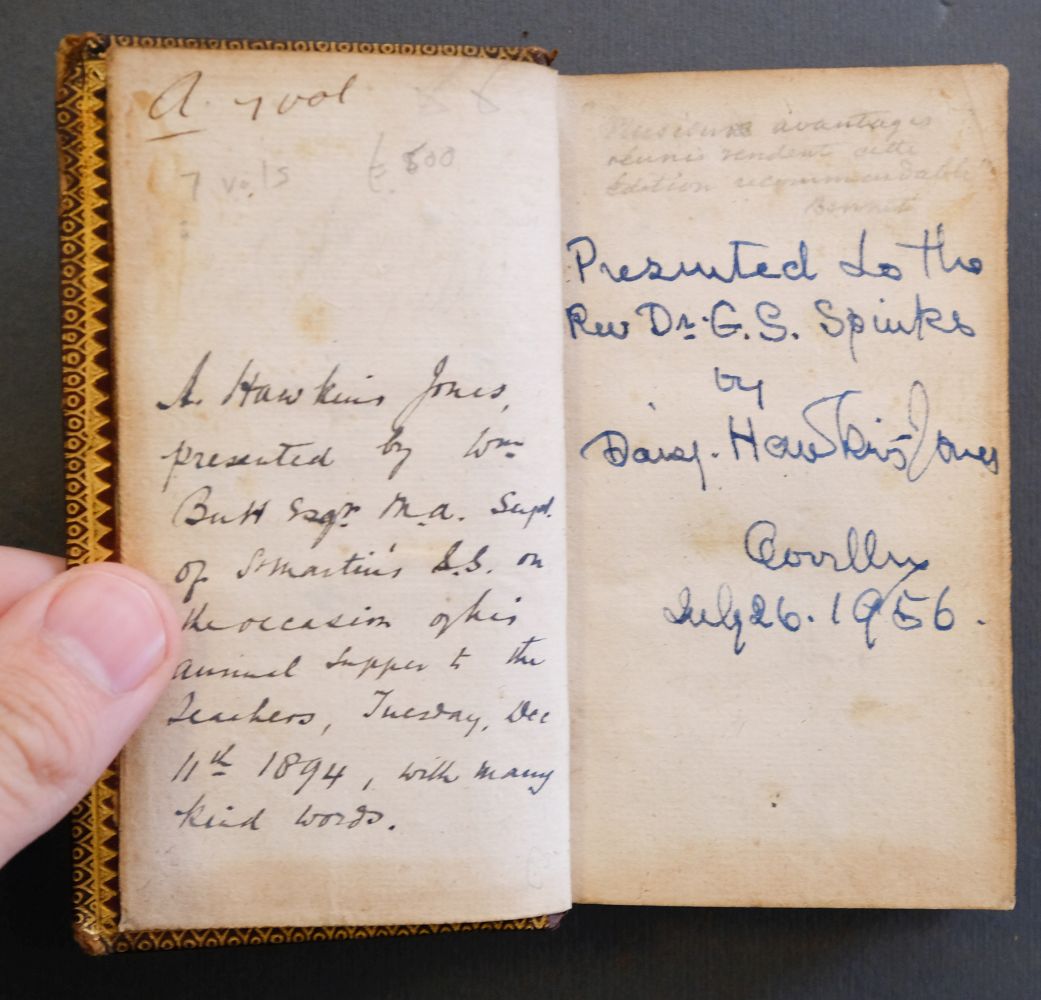 A. 7 vol
7 vols £500
A. Hawkins Jones,
presented by Wm
Butt Esqr. M.A. Supt.
of St Martin's S.S. on
the occasion of his
annual supper to the
Teachers, Tuesday, Dec
11th 1894, with many
kind words.
Plusieurs avantages
réunis rendent cette
Edition recommandable
Presented to the
Rev Dr. G. S. Spinks
by
Daisy. Hawkins Jones
July 26. 1956.